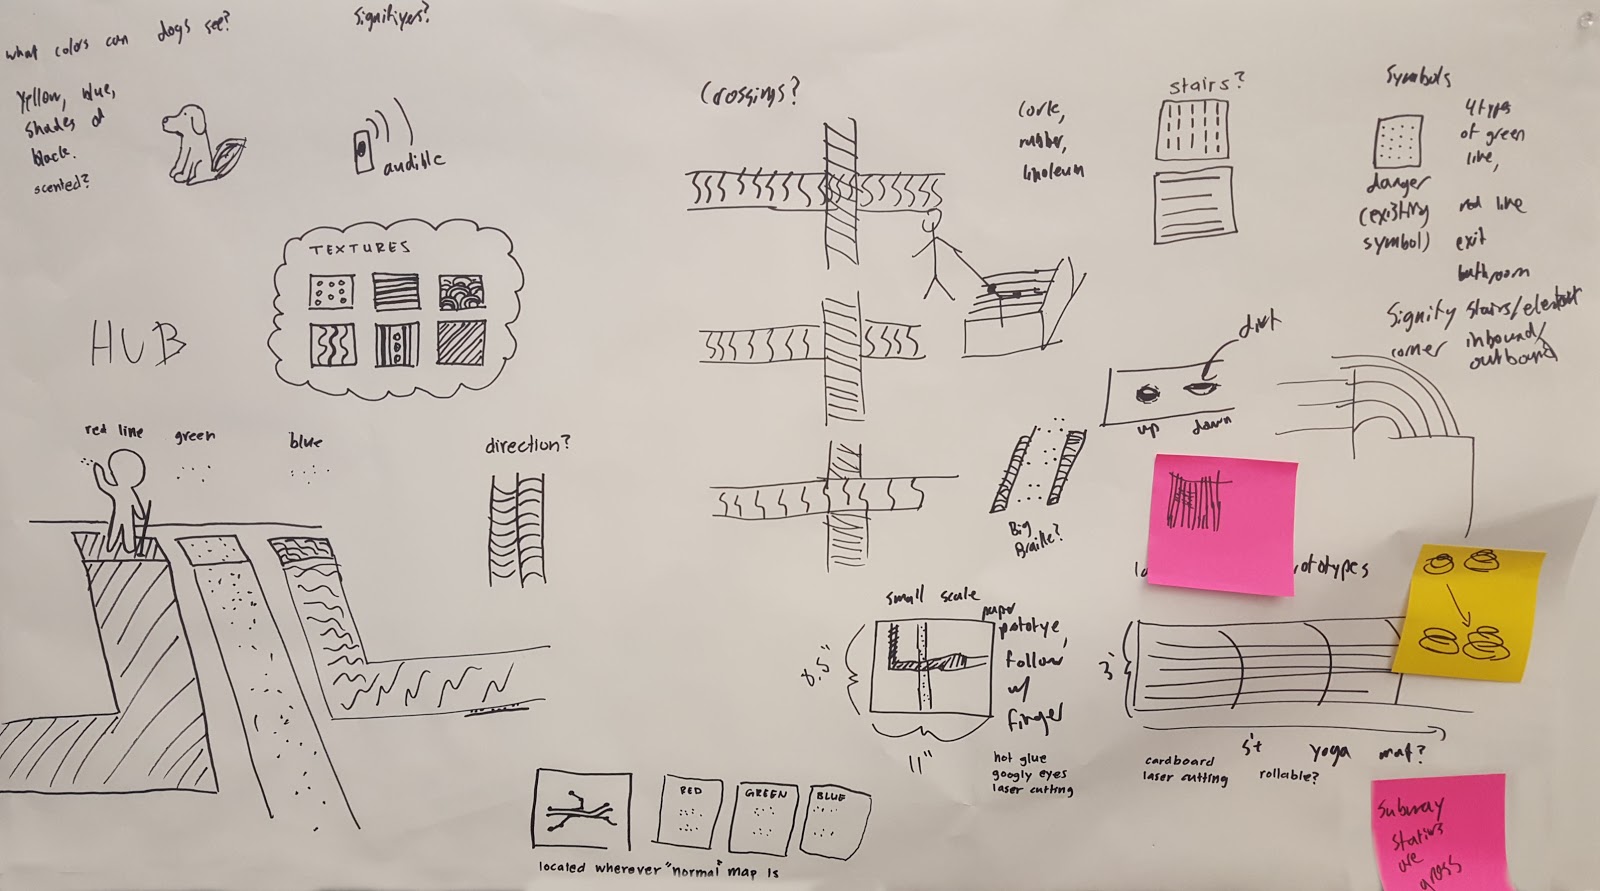 what colors can dogs see?
Yellow, blue,
shades of
black.
scented?
Signifiyers?
audible
TEXTURES
HUB
red line
green
blue
direction?
Crossings?
cork,
rubber,
linoleum
stairs?
Symbols
danger
(existing
symbol)
4 types
of green
line,
red line
exit
bathroom
stairs/elevator
inbound/
outbound
Signify
corner
up
down
Big
Braille?
small scale
paper
prototype,
follow
w/
finger
8.5"
11"
hot glue
googly eyes
laser cutting
3'
5'+
yoga mat?
cardboard
laser cutting
rollable?
RED
GREEN
BLUE
located wherever "normal" map is
subway
stations
are
gross